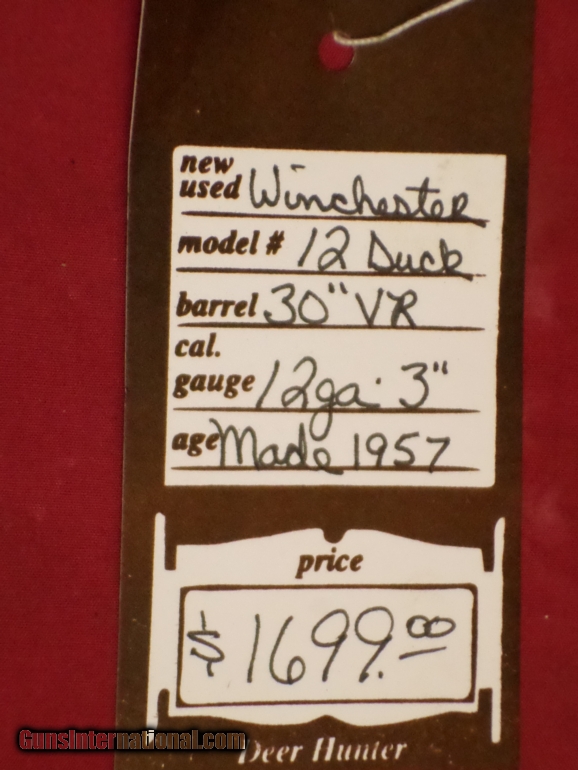 new
used Winchester
model # 12 Duck
barrel 30" VR
cal.
gauge 12ga. 3"
age Made 1957
price
$1699.00
GunsInternational.com
Deer Hunter